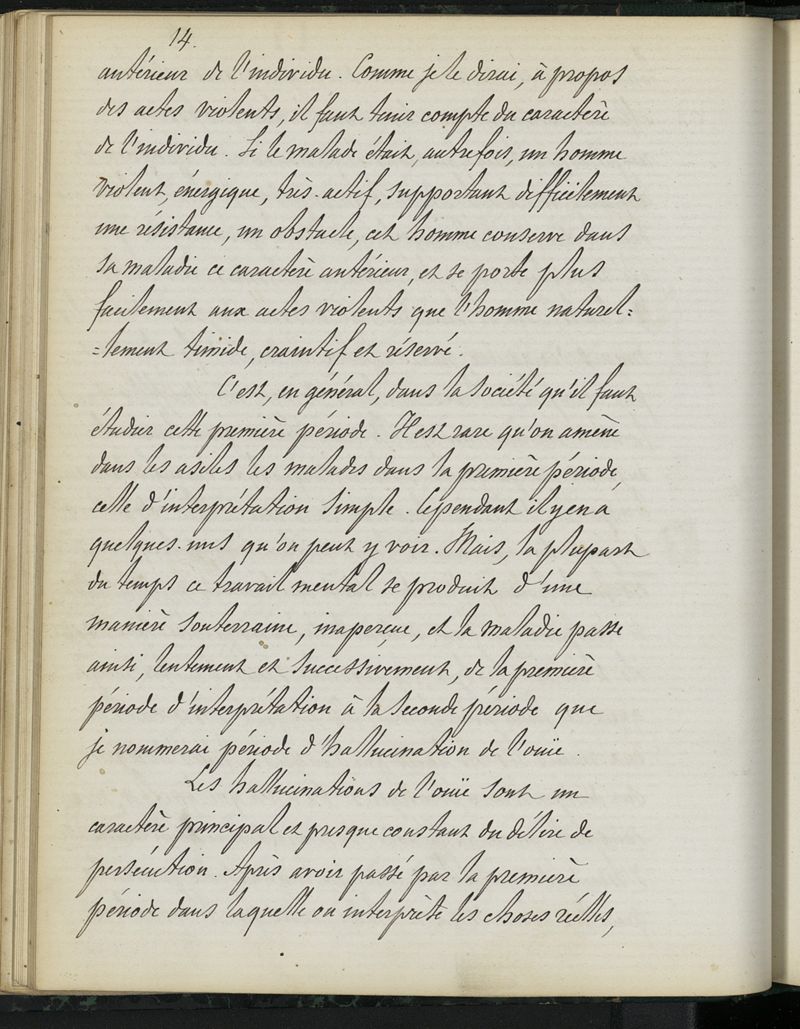 14.
antérieur de l'individu. Comme je le dirai, à propos
des actes violents, il faut tenir compte du caractère
de l'individu. Si le malade était, autrefois, un homme
violent, énergique, très-actif, supportant difficilement
une résistance, un obstacle, cet homme conserve dans
sa maladie ce caractère antérieur, et se porte plus
facilement aux actes violents que l'homme naturel=
=lement timide, craintif et réservé.
C'est, en général, dans la société qu'il faut
étudier cette première période. Il est rare qu'on amène
dans les asiles les malades dans la première période,
celle d'interprétation simple. Cependant il y en a
quelques-uns qu'on peut y voir. Mais, la plupart
du temps ce travail mental se produit d'une
manière souterraine, inaperçue, et la maladie passe
ainsi, lentement et successivement, de la première
période d'interprétation à la seconde période que
je nommerai période d'hallucination de l'ouïe.
Les hallucinations de l'ouïe sont un
caractère principal et presque constant du délire de
persécution. Après avoir passé par la première
période dans laquelle on interprète les choses réelles,